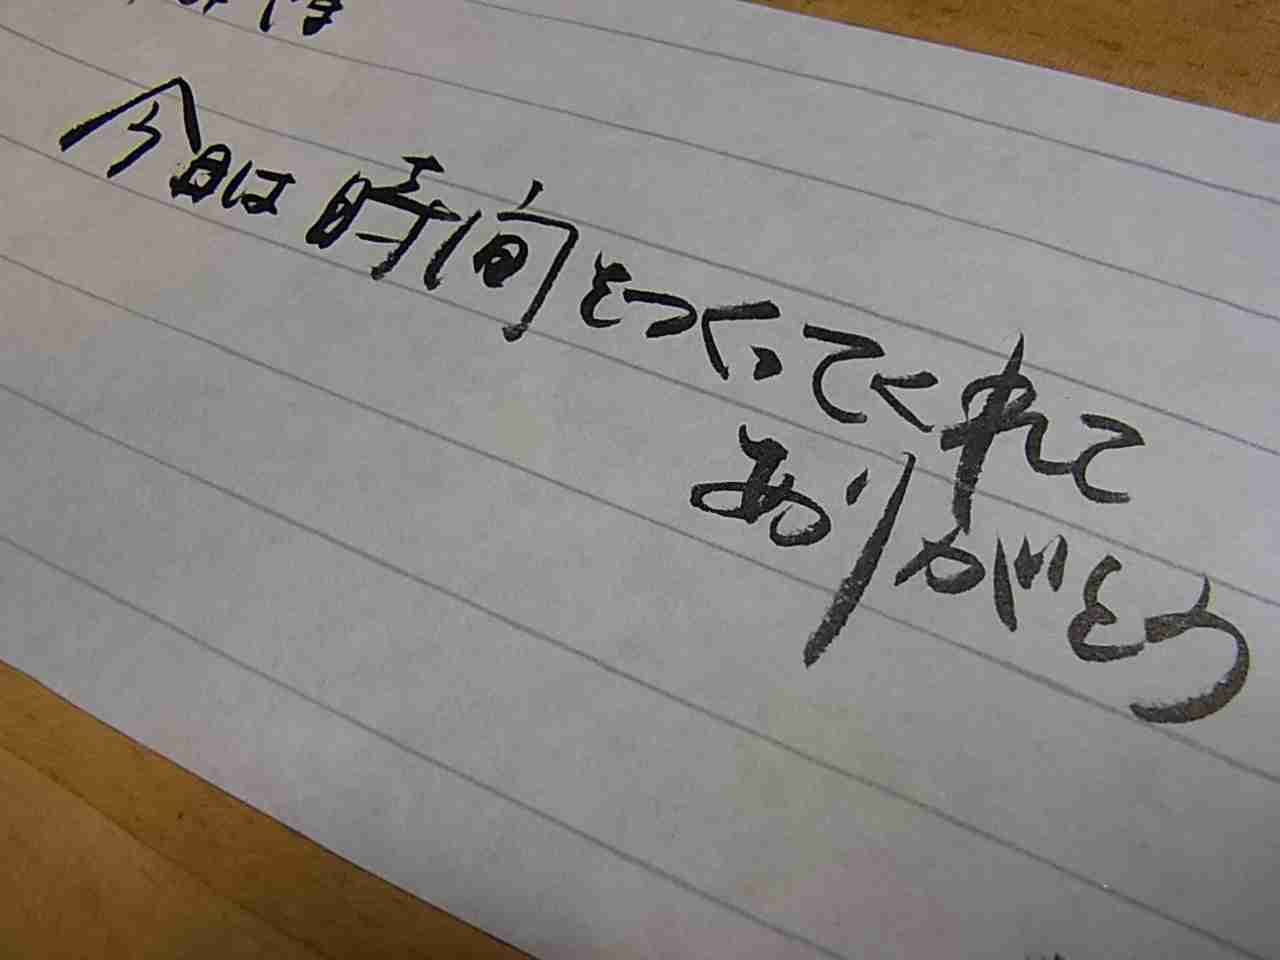 今日は時間をつくってくれて
ありがとう